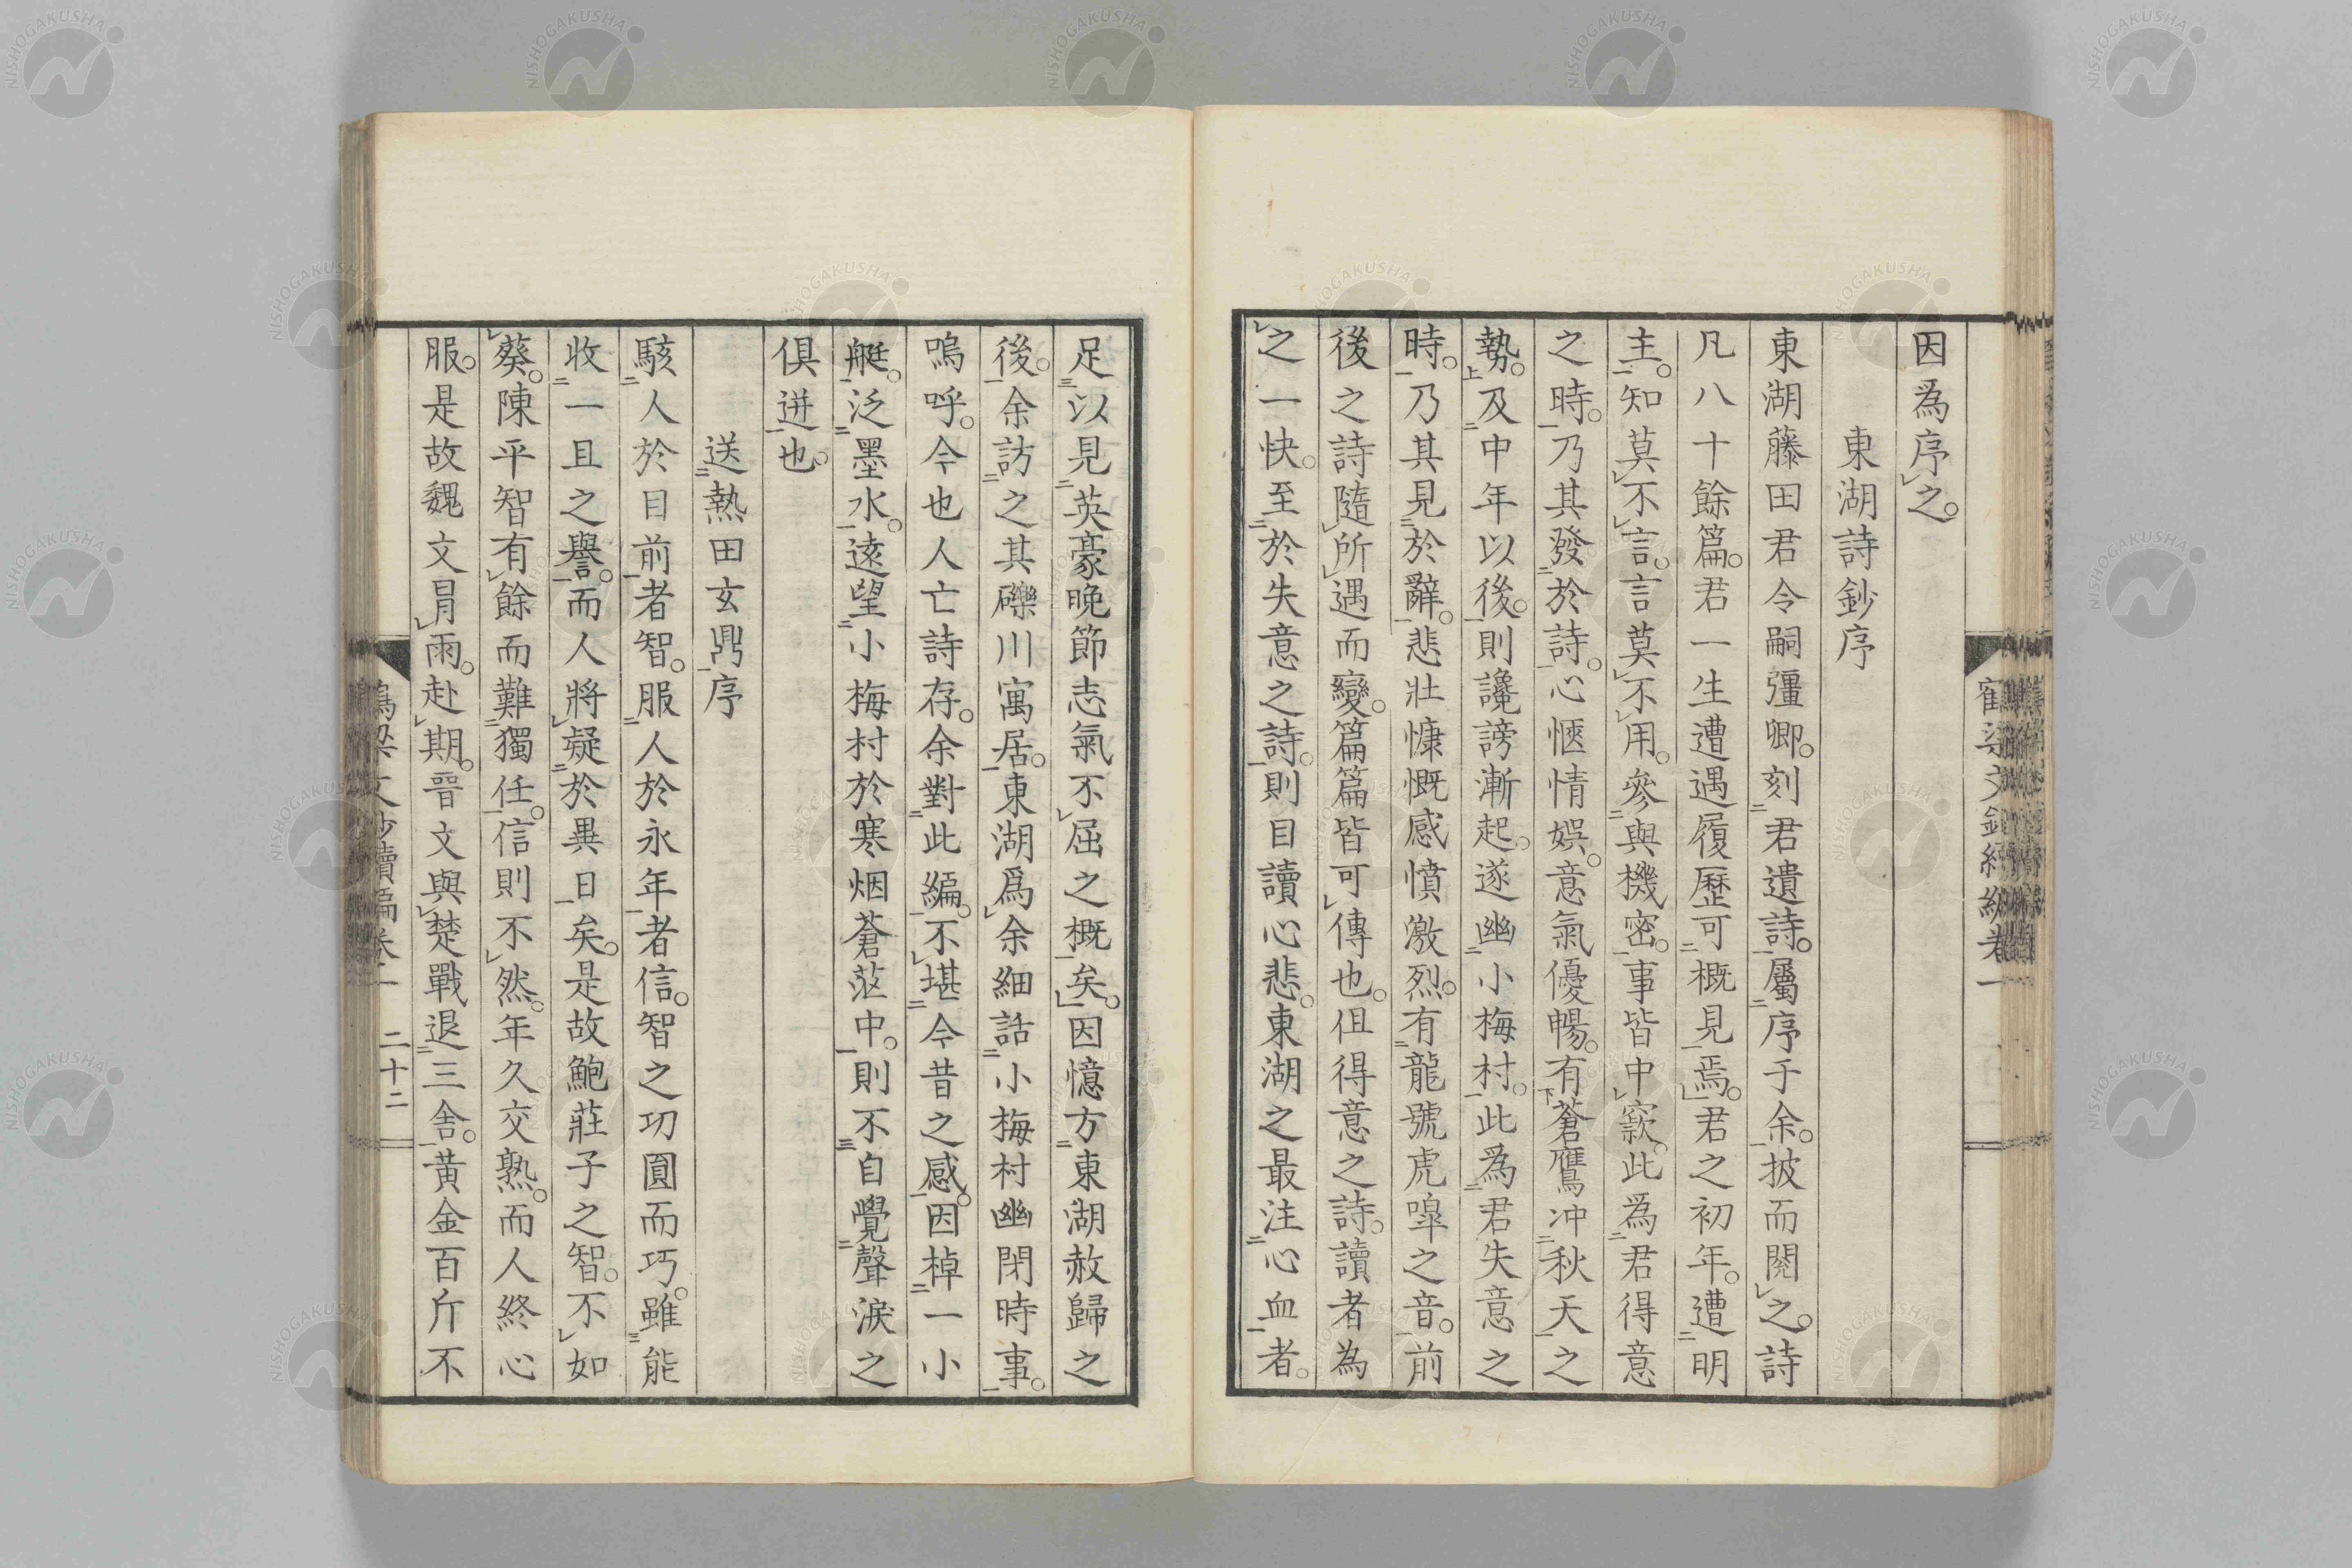 因爲序之。
東湖詩鈔序
東湖藤田君令嗣彊卿。刻君遺詩。屬序于余。披而閱之。詩
凡八十餘篇。君一生遭遇履歷可概見焉。君之初年。遭明
主。知莫不言。言莫不用。參與機密。事皆中窾。此爲君得意
之時。乃其發於詩。心愜情娛。意氣優暢。有蒼鷹冲秋天之
勢。及中年以後。則讒謗漸起。遂幽小梅村。此爲君失意之
時。乃其見於辭。悲壯慷慨感憤激烈。有龍號虎嘷之音。前
後之詩隨所遇而變。篇篇皆可傳也。但得意之詩。讀者為
之一快。至於失意之詩。則目讀心悲。東湖之最注心血者。
足以見英豪晚節志氣不屈之概矣。因憶方東湖赦歸之
後。余訪之其礫川寓居。東湖爲余細話小梅村幽閉時事。
嗚呼。今也人亡詩存。余對此編。不堪今昔之感。因棹一小
艇。泛墨水。遠望小梅村於寒烟蒼茫中。則不自覺聲淚之
俱迸也。
送熱田玄鼎序
駭人於目前者智。服人於永年者信。智之功圓而巧。雖能
收一旦之譽。而人將疑於異日矣。是故鮑莊子之智。不如
葵。陳平智有餘而難獨任。信則不然。年久交熟。而人終心
服。是故魏文冐雨。赴期。晉文與楚戰退三舍。黃金百斤不
二十二